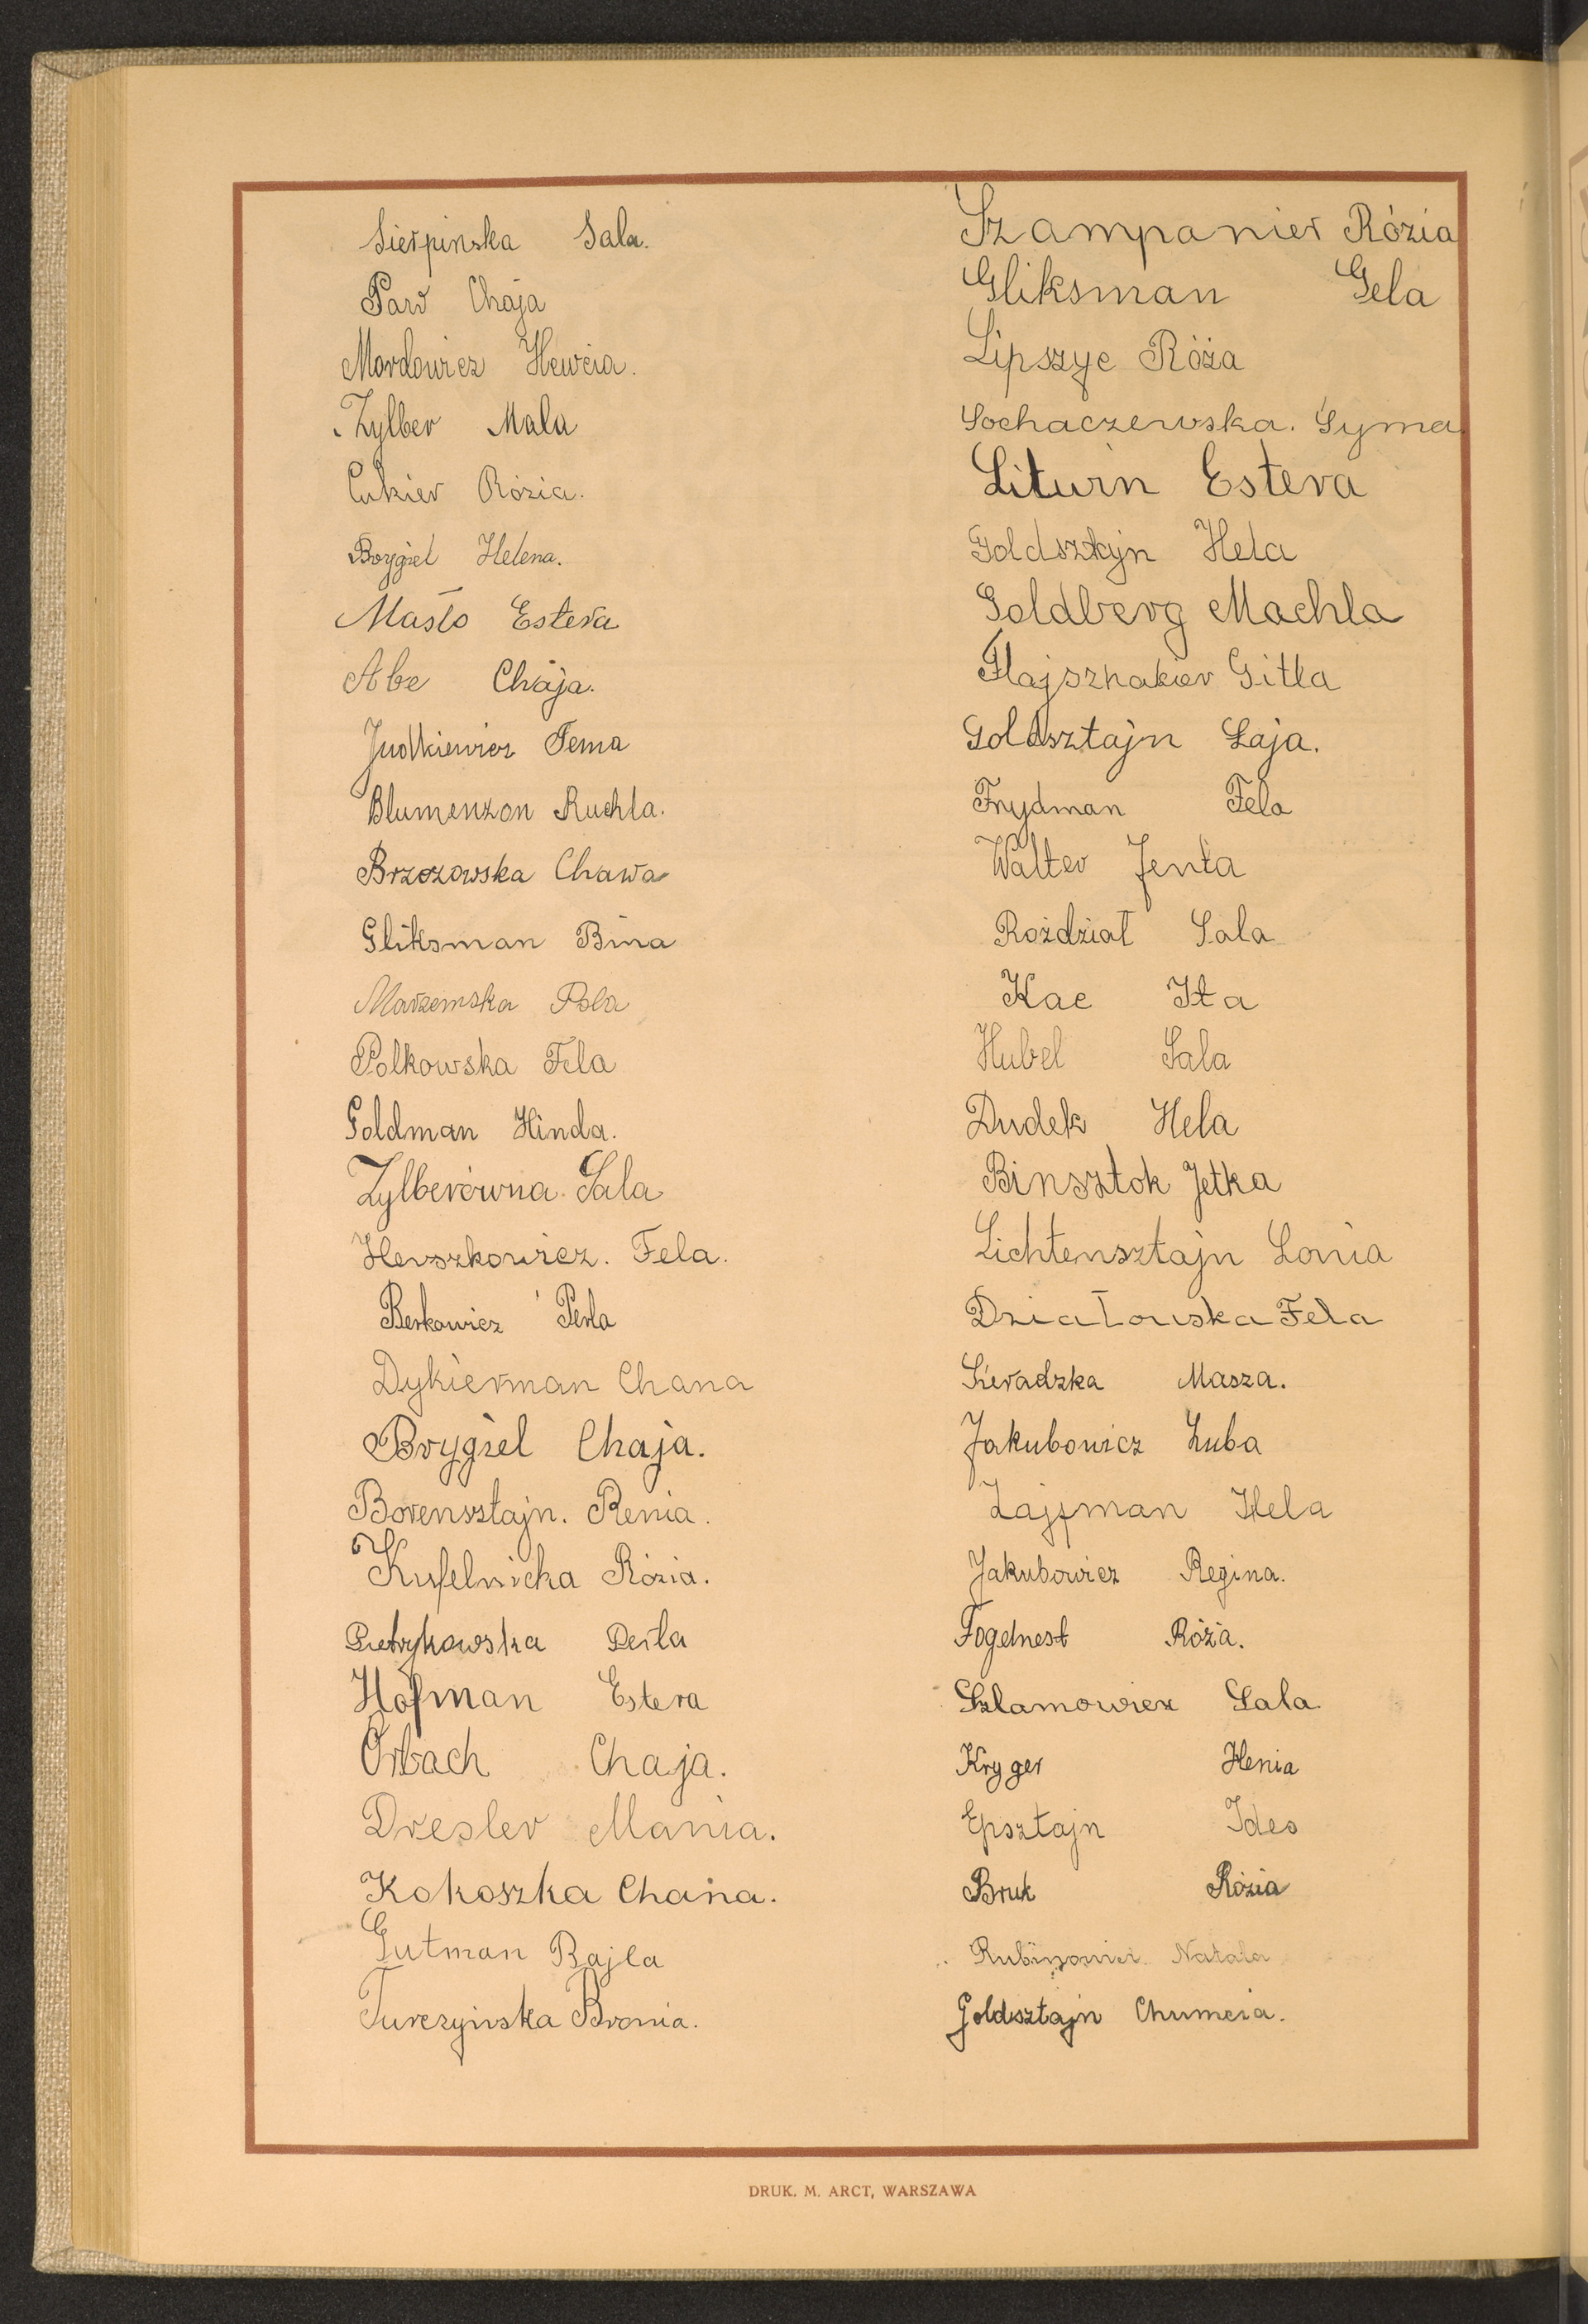 Sierpinska Sala.
Paw Chaja
Mordowicz Hewcia.
Zylber Mala
Cukier Rózia.
Brygiel Helena.
Masło Estera
Abe Chaja.
Judkiewicz Fema
Blumenzon Ruchla.
Brzozowska Chawa
Gliksman Bina
Marzemska Pola
Polkowska Fela
Goldman Hinda.
Zylberówna Sala
Herszkowicz. Fela.
Berkowicz Perla
Dykierman Chana
Brygiel Chaja.
Borensztajn. Renia.
Kufelnicka Rózia.
Pietrykowska Perla
Hofman Estera
Orbach Chaja.
Dresler Mania.
Kokoszka Chana.
Gutman Bajla
Turczyńska Bronia.
Szampanier Rózia
Gliksman Gela
Lipszyc Róża
Sochaczewska. Syma
Liturin Estera
Goldsztajn Hela
Goldberg Machla
Flajszhakier Gitla
Goldsztajn Łaja.
Frydman Fela
Walter Jenta
Rożdział Sala
Kac Ita
Hubel Sala
Dudek Hela
Binsztok Jetka
Lichtensztajn Lonia
Działowska Fela
Sieradzka Masza.
Jakubowicz Luba
Zajfman Hela
Jakubowicz Regina.
Fogelnest Róża.
Szlamowicz Sala
Kryger Henia
Epsztajn Ides
Bruk Rózia
Natala
Goldsztajn Chumcia.
DRUK. M. ARCT, WARSZAWA